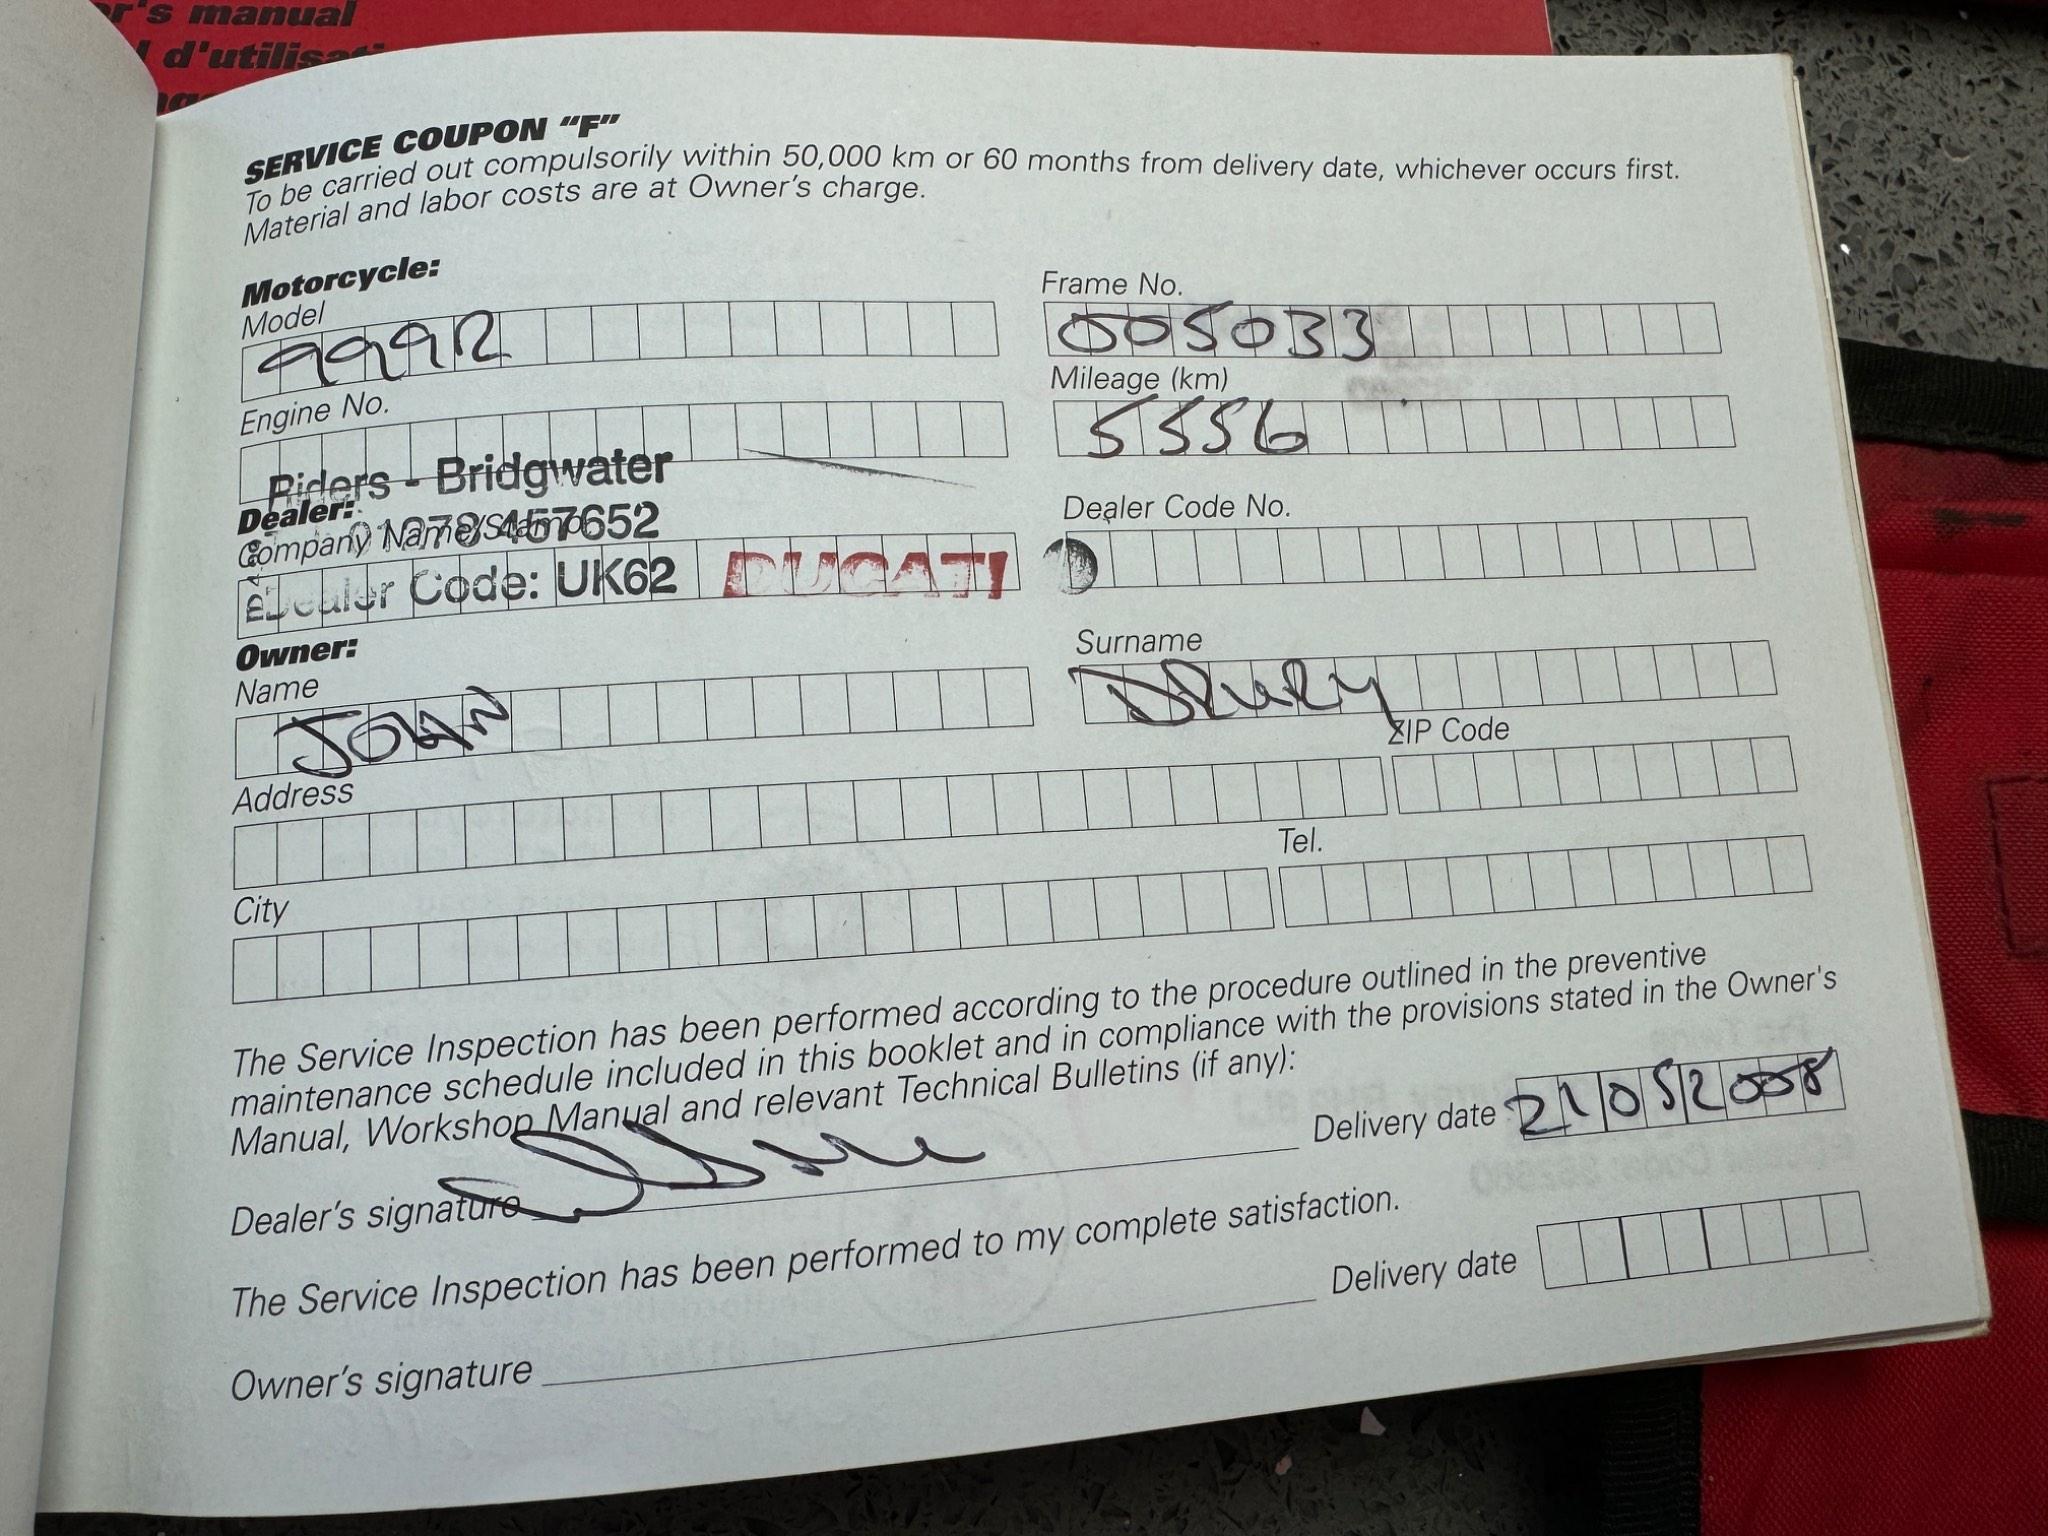 r's manual
d'utilisati
SERVICE COUPON "F"
To be carried out compulsorily within 50,000 km or 60 months from delivery date, whichever occurs first.
Material and labor costs are at Owner's charge.
Motorcycle:
Model
999R
Frame No.
005033
Engine No.
Mileage (km)
5556
Riders - Bridgwater
Dealer:
01278 457652
Company Name/Stamp
Dealer Code: UK62
DUCATI
Dealer Code No.
Owner:
Name
JOHN
Surname
DRURY
Address
ZIP Code
City
Tel.
The Service Inspection has been performed according to the procedure outlined in the preventive
maintenance schedule included in this booklet and in compliance with the provisions stated in the Owner's
Manual, Workshop Manual and relevant Technical Bulletins (if any):
Delivery date 21052008
Dealer's signature
The Service Inspection has been performed to my complete satisfaction.
Delivery date
Owner's signature